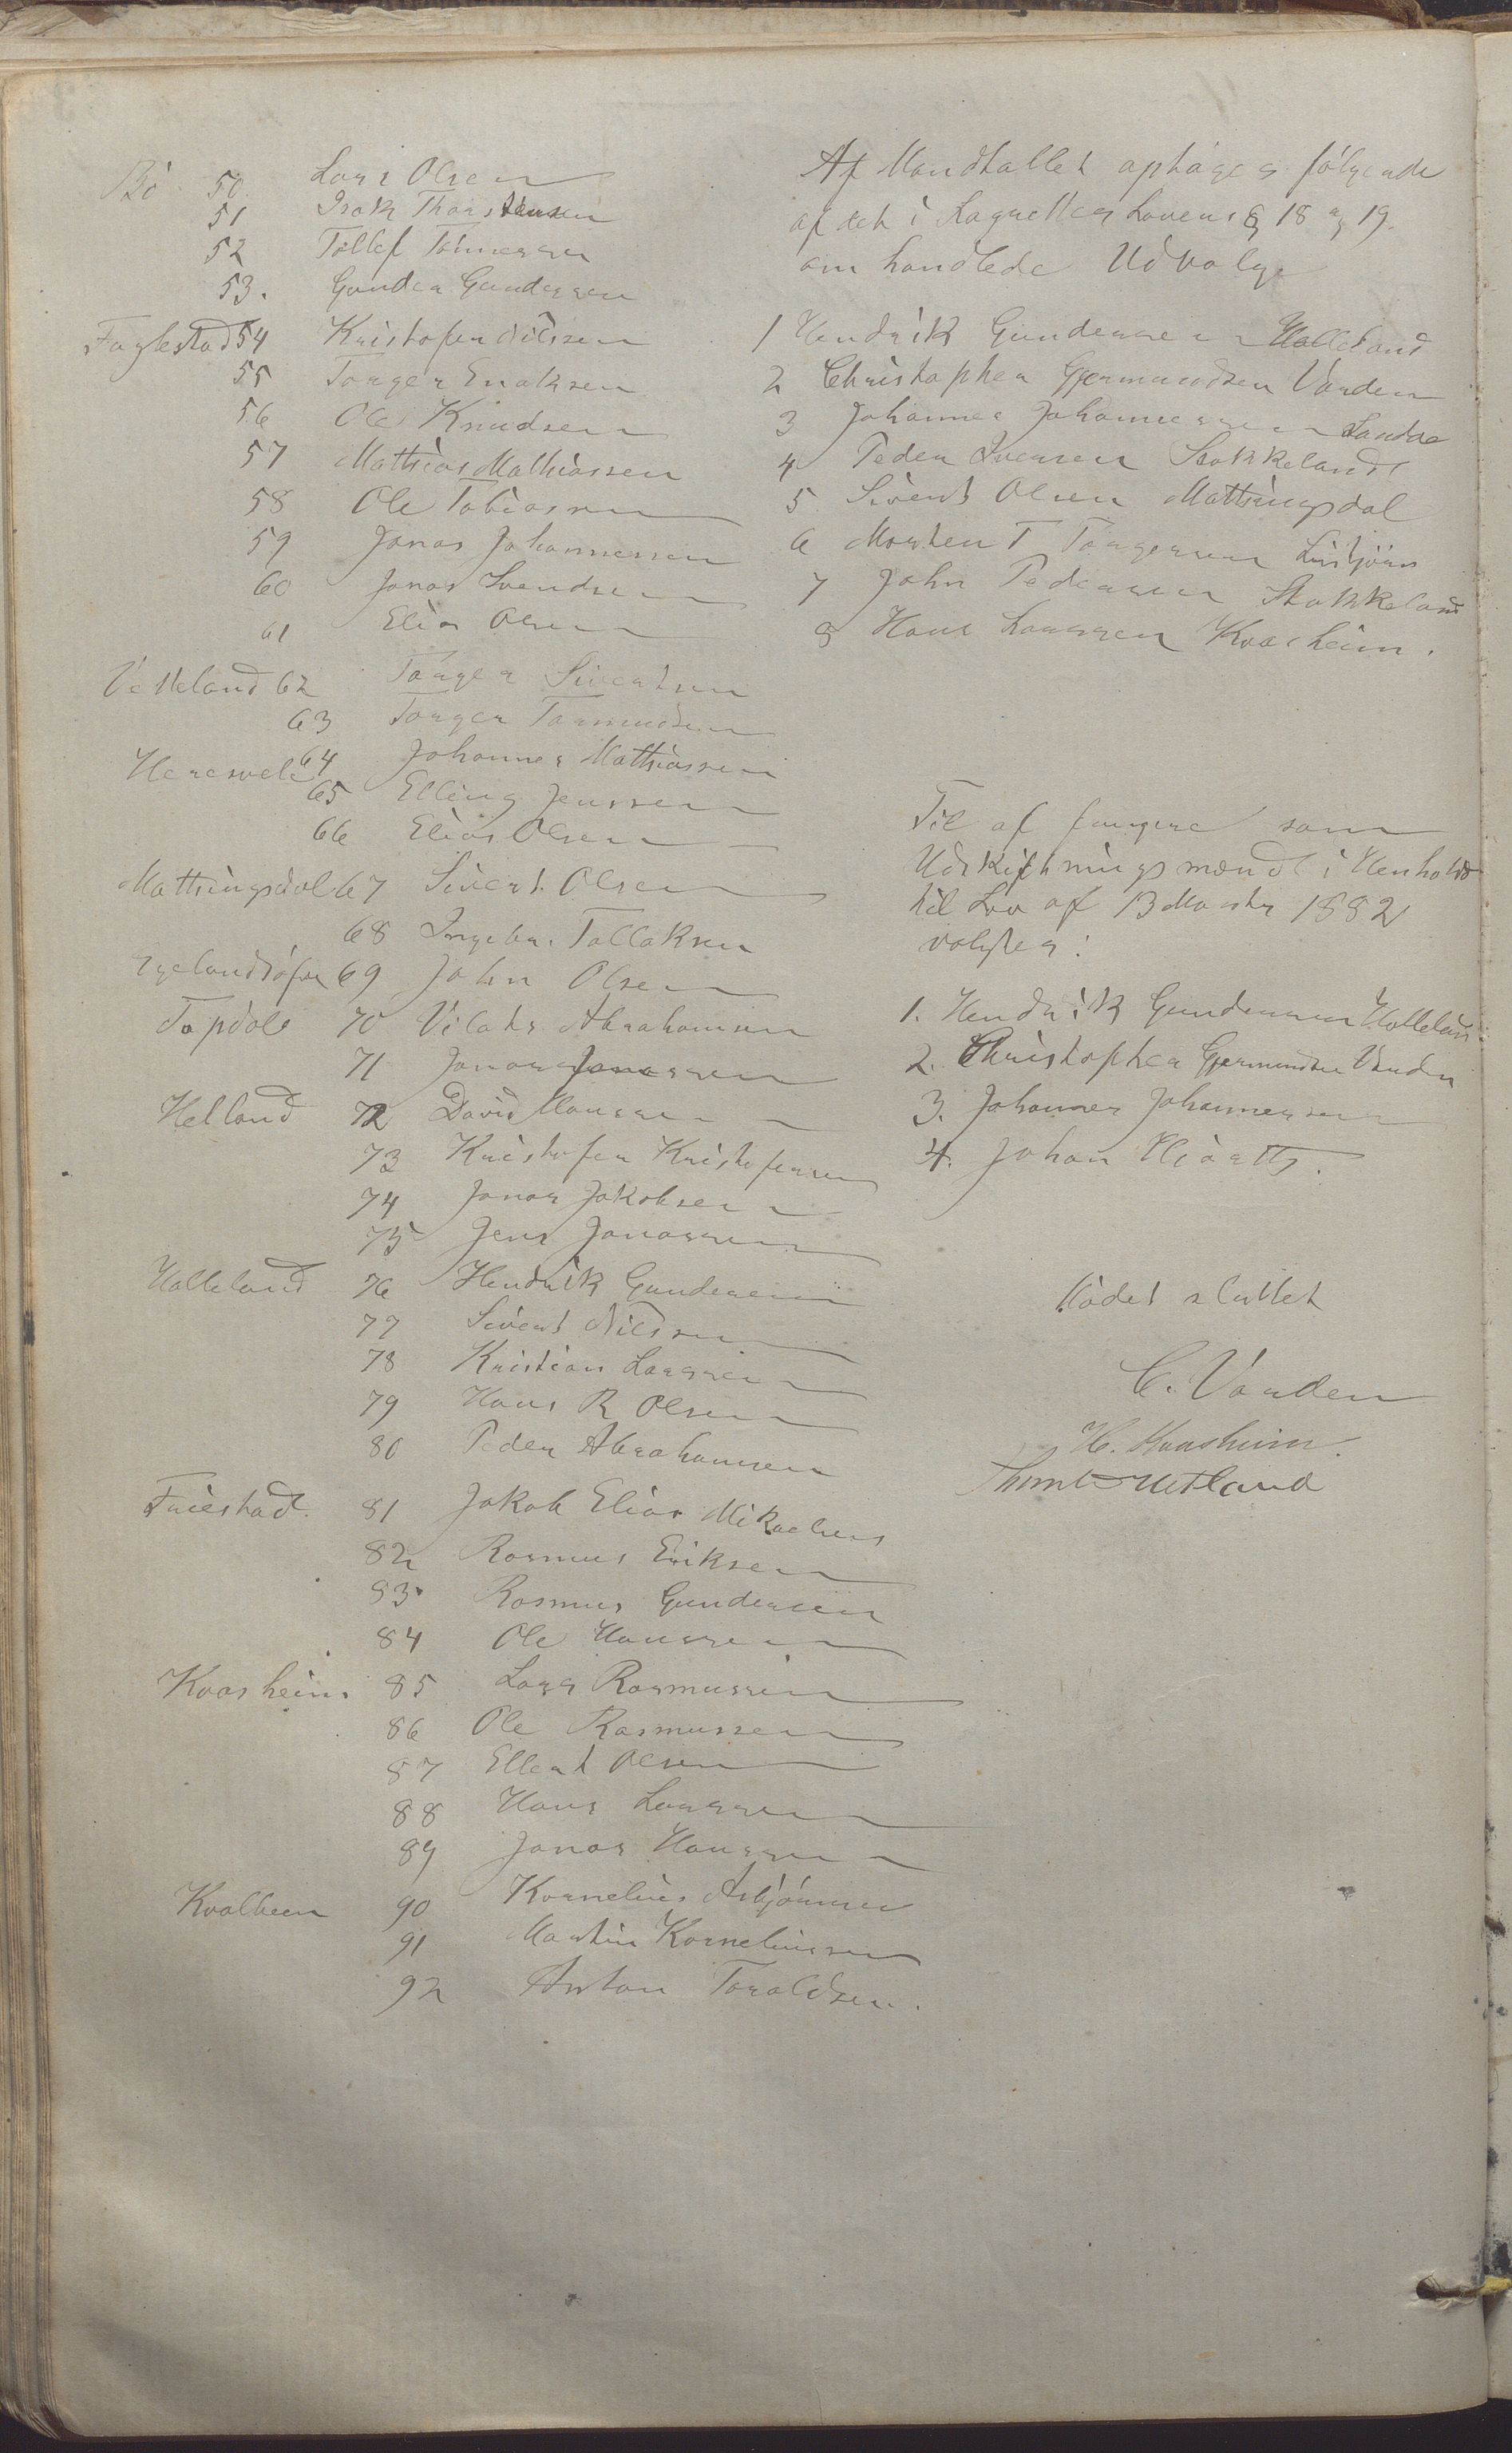 Bö 50 Lars Olsen
51 Isak Thorstensen
52 Tollef Tönnessen
53. Gunder Gundersen
Fuglestad 54 Kristofer Nilssen
55 Torger Enoksen
56 Ole Knudsen
57 Mathias Mathiassen
58 Ole Tobiassen
59 Jonas Johannessen
60 Jonas Svendsen
61 Elias Olsen
Vetteland 62 Torger Sivertsen
63 Torger Tormundsen
64 Johannes Mathiassen
65 Elling Jenssen
66 Elias Olsen
Mattingsdal 67 Sivert Olsen
68 Ingebr. Tollaksen
69 John Olsen
Topdal 70 Vilats Abrahamsen
71 Jonas Jonassen
Helland 72 David Hanssen
73 Kristofer Kristofersen
74 Jonas Jakobsen
75 Jens Jonassen
Halleland 76 Hendrik Gundersen
77 Sivert Nilssen
78 Kristian Larssen
79 Hans R Olsen
80 Peder Abrahamsen
Friestad. 81 Jakob Elias Mikaelsens
82 Rasmus Eriksen
83 Rasmus Gundersen
84 Ole Hanssen
Kvasheim 85 Lars Rasmussen
86 Ole Rasmussen
87 Ellert Olsen
88 Hans Larssen
89 Jonas Hanssen
Kvalbein 90 Kornelius Asbjörnsen
91 Martin Korneliussen
92 Anton Toraldsen.
Af Mandtallet optages følgende
af det i Lagrettes Lovens § 18 og 19.
om handlede Udvalg
1 Hendrik Gunderssen Halleland
2 Christopher Gjermundsen Varden
3 Johannes Johannessen Sandve
4 Peder Iversen Stokkeland
5 Sivert Olsen Mattingsdal
6 Morten T Torgersen
7 John Pedersen Stokkeland
8 Hans Larssen Kvasheim.
Til at fungere som
Udskiftningsmænd i Henhold
til Lov af 13 Marts 1882
valgtes:
1. Hendrik Gundersen Halleland
2. Christopher Gjermundsen Varden
3. Johannes Johannessen
4. Johan Hiorth.
Mödet sluttet
C. Varden
H. Kvasheim.
Uetland